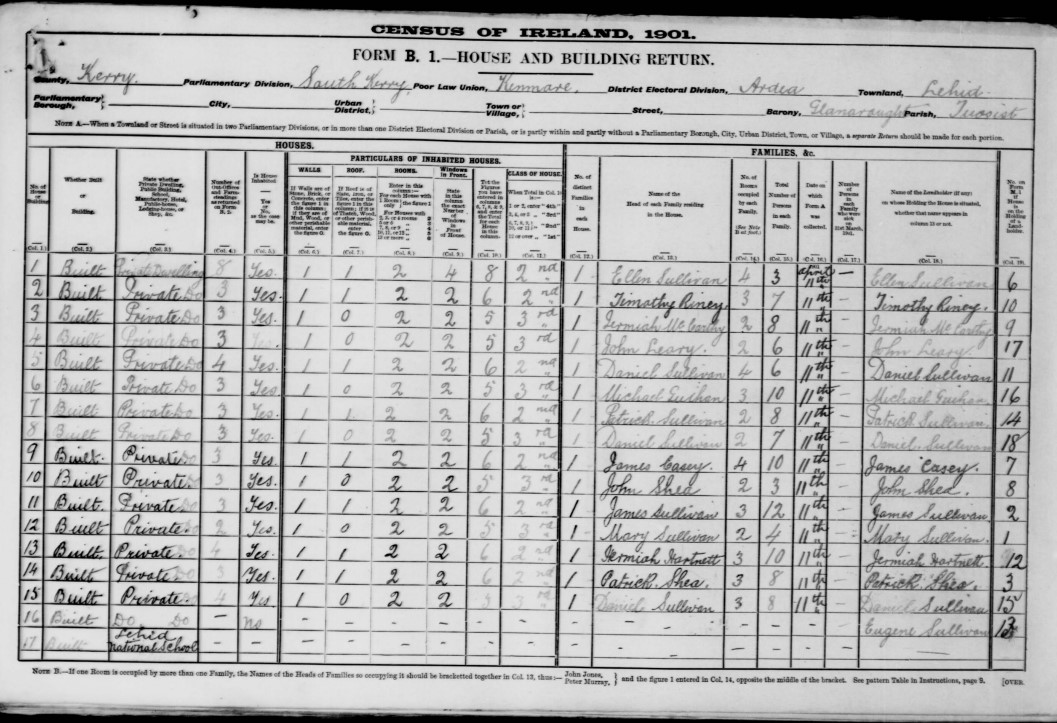 CENSUS OF IRELAND, 1901.
FORM B. 1.—HOUSE AND BUILDING RETURN.
County, Kerry. Parliamentary Division, South Kerry Poor Law Union, Kenmare. District Electoral Division, Ardea Townland, Lehid.
Parliamentary Borough, City, Urban District, Town or Village, Street, Barony, Glanarought Parish, Tuosist
NOTE A.—When a Townland or Street is situated in two Parliamentary Divisions, or in more than one District Electoral Division or Parish, or is partly within and partly without a Parliamentary Borough, City, Urban District, Town, or Village, a separate Return should be made for each portion.
HOUSES. FAMILIES, &c.
PARTICULARS OF INHABITED HOUSES.
WALLS. ROOF. ROOMS. Windows in Front. CLASS OF HOUSE.
No. of House or Building Whether Built or Building. State whether Private Dwelling, Public Building, School, Manufactory, Hotel, Public-house, Lodging-house, or Shop, &c. Number of Out-Offices and Farm-steadings as returned on Form B. 2. Is House Inhabited Yes or No, as the case may be. No. of distinct Families in each House. Name of the Head of each Family residing in the House. No. of Rooms occupied by each Family. Total Number of Persons in each Family. Date on which Form A was collected. Name of the Landholder (if any) on whose Holding the House is situated, whether that name appears in column 13 or not. No. on Form M. 1.
(Col. 1.) (Col. 2.) (Col. 3.) (Col. 4.) (Col. 5.) (Col. 6.) (Col. 7.) (Col. 8.) (Col. 9.) (Col. 10.) (Col. 11.) (Col. 12.) (Col. 13.) (Col. 14.) (Col. 15.) (Col. 16.) (Col. 17.) (Col. 18.) (Col. 19.)
1 Built Private Dwelling 8 Yes. 1 1 2 4 8 2nd 1 Ellen Sullivan 4 3 April 11th — Ellen Sullivan 6
2 Built Private Do 3 Yes. 1 1 2 2 6 2nd 1 Timothy Riney 3 7 11th — Timothy Riney. 10
3 Built Private Do 3 Yes. 1 0 2 2 5 3rd 1 Jermiah McCarthy 2 8 11th — Jermiah McCarthy 9
4 Built Private Do 3 Yes. 1 0 2 2 5 3rd 1 John Leary. 2 6 11th — John Leary. 17
5 Built Private Do 4 Yes. 1 1 2 2 6 2nd 1 Daniel Sullivan 4 6 11th — Daniel Sullivan 11
6 Built Private Do 3 Yes 1 0 2 2 5 3rd 1 Michael 3 10 11th — Michael 16
7 Built Private Do 3 Yes. 1 1 2 2 6 2nd 1 Patrick Sullivan 2 8 11th — Patrick Sullivan. 14
8 Built Private Do 3 Yes. 1 0 2 2 5 3rd 1 Daniel Sullivan 2 7 11th — Daniel Sullivan 18
9 Built. Private Do 3 Yes. 1 1 2 2 6 2nd 1 James Casey. 4 10 11th — James Casey. 7
10 Built Private Do 3 Yes. 1 0 2 2 5 3rd 1 John Shea 2 3 11th — John Shea. 8
11 Built. Private Do 3 Yes. 1 1 2 2 6 2nd 1 James Sullivan 3 12 11th — James Sullivan 2
12 Built Private Do 2 Yes. 1 0 2 2 5 3rd 1 Mary Sullivan 2 4 11th — Mary Sullivan. 1
13 Built. Private Do 4 Yes. 1 1 2 2 6 2nd 1 Jermiah Hartnett 3 10 11th — Jermiah Hartnett 12
14 Built Private Do 3 Yes. 1 1 2 2 6 2nd 1 Patrick Shea. 3 8 11th — Patrick Shea. 3
15 Built Private Do 4 Yes 1 0 2 2 3rd 1 Daniel Sullivan 3 8 11th — Daniel Sullivan 15
16 Built Do Do — no — — — — — — — — — — — — Eugene Sullivan 13
17 Built Lehid National School — — — — — — — — — — — — — —
NOTE B.—If one Room is occupied by more than one Family, the Names of the Heads of Families so occupying it should be bracketted together in Col. 13, thus:— John Jones, Peter Murray, } and the figure 1 entered in Col. 14, opposite the middle of the bracket. See pattern Table in Instructions, page 9. [OVER.